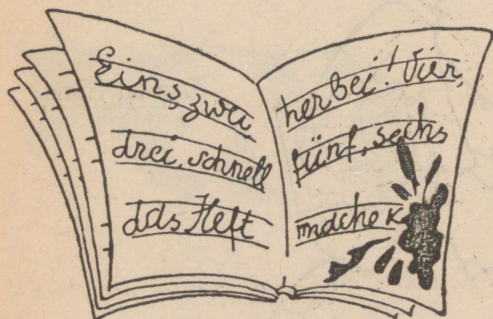 Eins, zwei,
drei, schnell
das Heft
herbei! Vier,
fünf, sechs
mache k